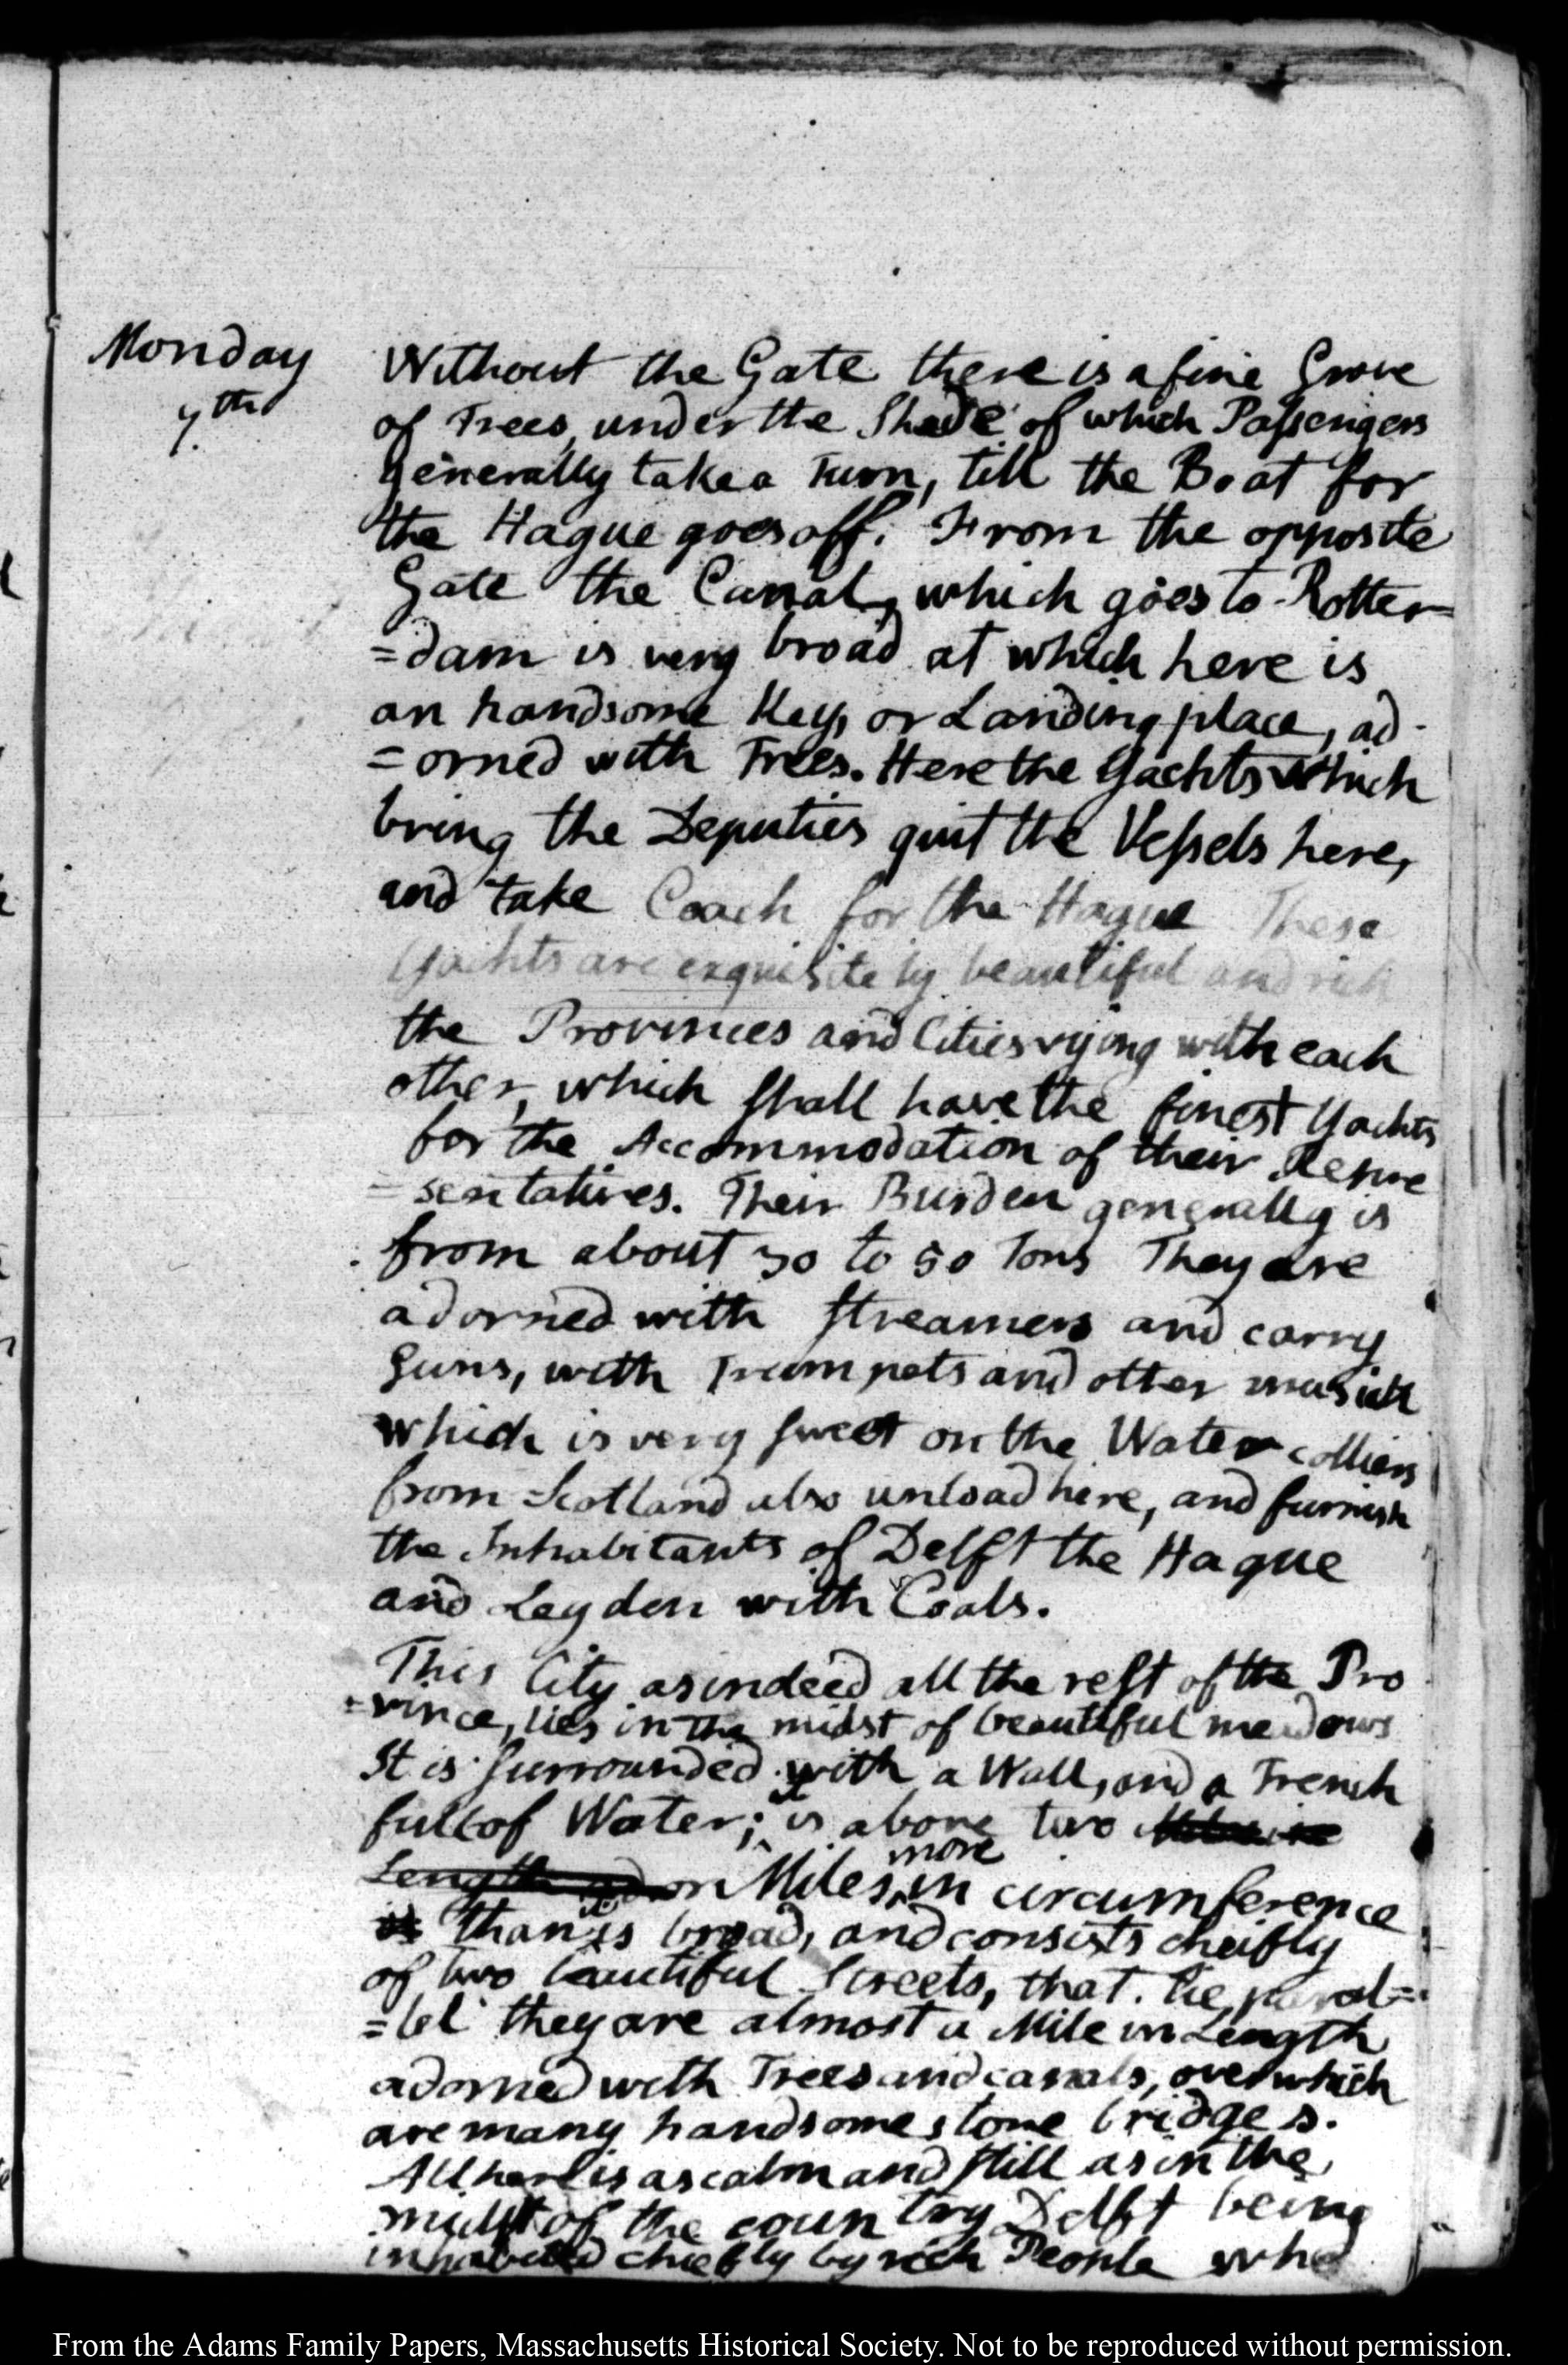 Monday
7th.
Without the Gate there is a fine Grove
of Trees, under the Shade of which Passengers
generally take a Turn, till the Boat for
the Hague goes off. From the opposite
Gate the Canal, which goes to Rotter=
=dam is very broad at which here is
an handsome Key, or Landing place, ad-
=orned with Trees. Here the Yachts which
bring the Deputies quit the Vessels here,
and take Coach for the Hague These
Yachts are exquisitely beautiful and rich
the Provinces and Cities vying with each
other, which shall have the finest Yachts
for the Accommodation of their Repre
=sentatives. Their Burden generally is
from about 30 to 50 Tons They are
adorned with streamers and carry
Guns, with Trumpets and other musick
which is very sweet on the Water colliers
from Scotland also unload here, and furnish
the Inhabitants of Delft the Hague
and Leyden with Coals.
This City as indeed all the rest of the Pro
=vince, lies in the midst of beautiful meadows
It is surrounded with a Wall, and a Trench
full of Water; it is above two Miles in
Length or Miles more in circumference
is than it is broad, and consists cheifly
of two beautiful Streets, that lie paral=
=lel they are almost a Mile in Length
adorned with Trees and canals, over which
are many handsome stone bridges.
All here is as calm and still as in the
midst of the country Delft being
inhabited chiefly by rich People who
From the Adams Family Papers, Massachusetts Historical Society. Not to be reproduced without permission.